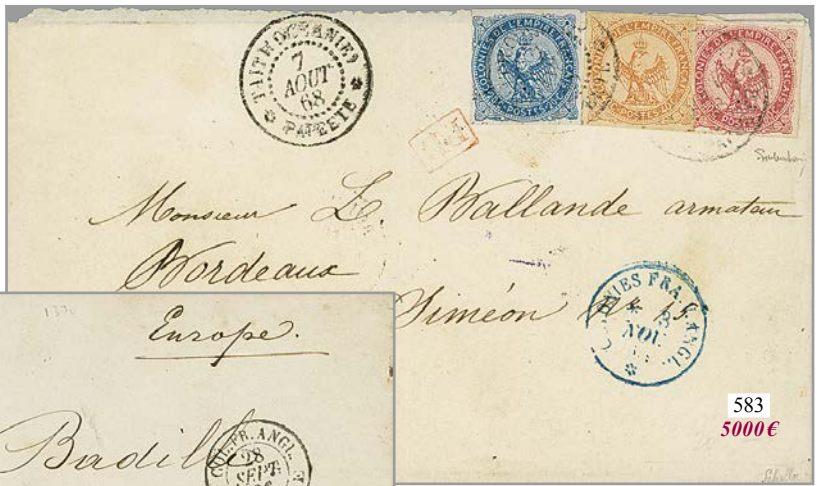 TAITI (OCÉANIE)
7
AOUT
68
PAPEETE
COLONIES DE L'EMPIRE FRANÇAIS
POSTES
COLONIES DE L'EMPIRE FRANÇAIS
POSTES
COLONIES DE L'EMPIRE FRANÇAIS
POSTES
Monsieur L. Ballande armateur
Bordeaux
Siméon
15
COLONIES FRA. V. ANGL.
3
NOV.
583
5000€
Europe.
Badille
COL. FR. ANGL.
28
SEPT.